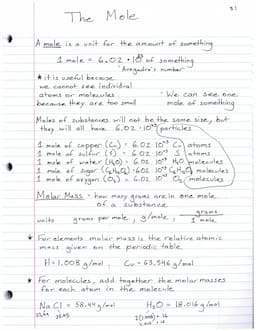 31
The Mole
A mole is a unit for the amount of something
1 mole = 6.02 · 10²³ of something
"Avogadro's number"
* it is useful because
we cannot see individual
atoms or molecules
because they are too small
- We can see one
mole of something
Moles of substances will not be the same size, but
they will all have 6.02 · 10²³ particles
1 mole of copper (Cu) = 6.02 · 10²³ Cu atoms
1 mole of sulfur (S) = 6.02 · 10²³ S atoms
1 mole of water (H₂O) = 6.02 · 10²³ H₂O molecules
1 mole of sugar = 6.02 · 10²³ molecules
1 mole of oxygen (O₂) = 6.02 · 10²³ O₂ molecules
Molar Mass - how many grams are in one mole
of a substance
units grams per mole, g/mole, grams
1 mole
* For elements molar mass is the relative atomic
mass given on the periodic table
H = 1.008 g/mol, Cu = 63.546 g/mol
* For molecules, add together the molar masses
for each atom in the molecule
NaCl = 58.44 g/mol H₂O = 18.016 g/mol
2(1.008) + 16